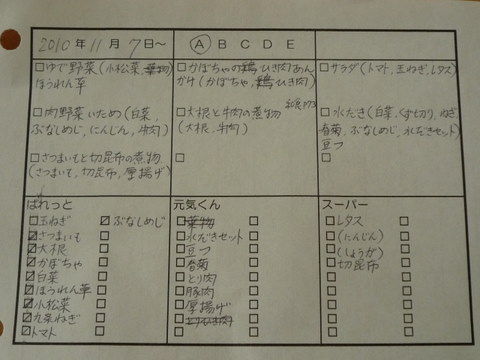 2010年11月7日～
A B C D E
□ゆで野菜(小松菜,葉物
ほうれん草)
□肉野菜いため(白菜,
ぶなしめじ,にんじん,牛肉)
□さつまいもと切昆布の煮物
(さつまいも,切昆布,厚揚げ)
□かぼちゃの鶏ひき肉あん
かけ(かぼちゃ,鶏ひき肉)
□大根と牛肉の煮物
(大根,牛肉)
□
□サラダ(トマト,玉ねぎ,レタス)
□水だき(白菜,くず切り,ねぎ
春菊,ぶなしめじ,水だきセット)
豆つ
□
ぱれっと
□玉ねぎ
☑さつまいも
☑大根
☑かぼちゃ
☑白菜
☑ほうれん草
☑小松菜
☑九条ねぎ
□トマト
☑ぶなしめじ
元気くん
□葉物
□水だきセット
□豆つ
□春菊
□とり肉
□豚肉
□厚揚げ
□とりひき肉
スーパー
□レタス
□(にんじん)
□(しょうが)
□切昆布